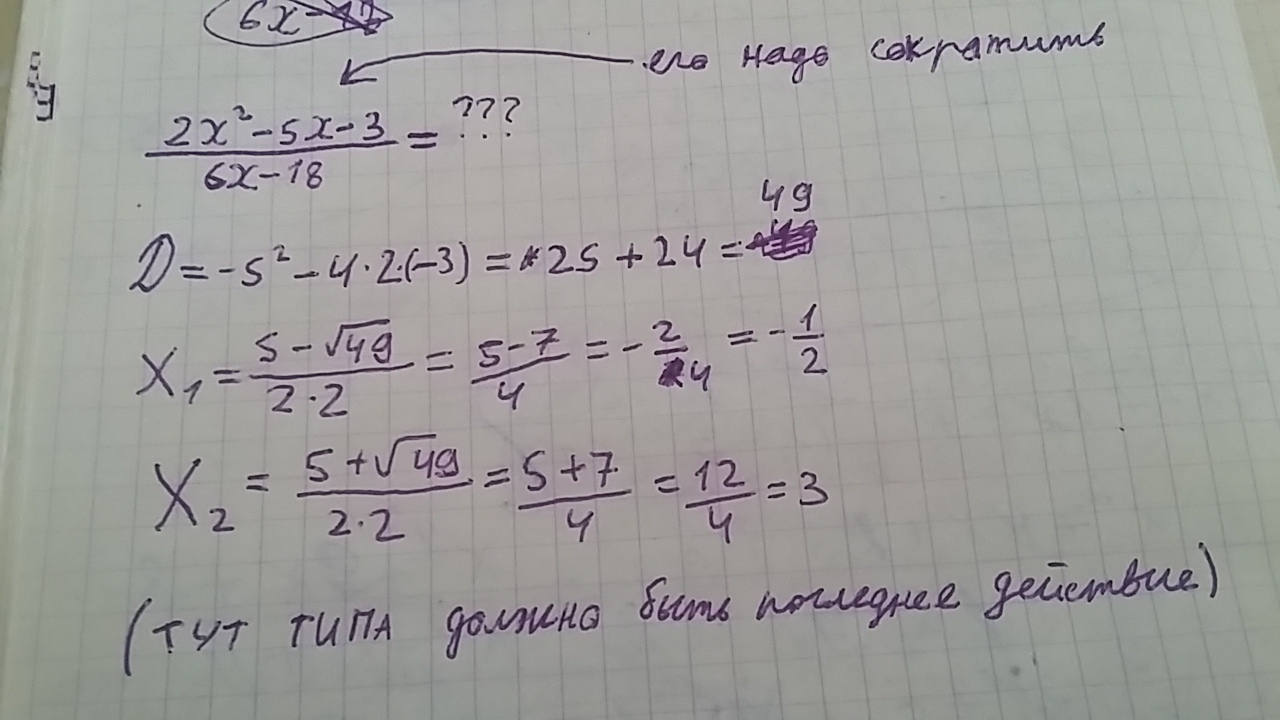 6x-12
его надо сократить
2x²-5x-3 / 6x-18 = ???
49
D = -5² - 4·2·(-3) = 25 + 24 =
X₁ = 5-√49 / 2·2 = 5-7 / 4 = - 2/4 = - 1/2
X₂ = 5+√49 / 2·2 = 5+7 / 4 = 12/4 = 3
(ТУТ ТИПА должно быть последнее действие)